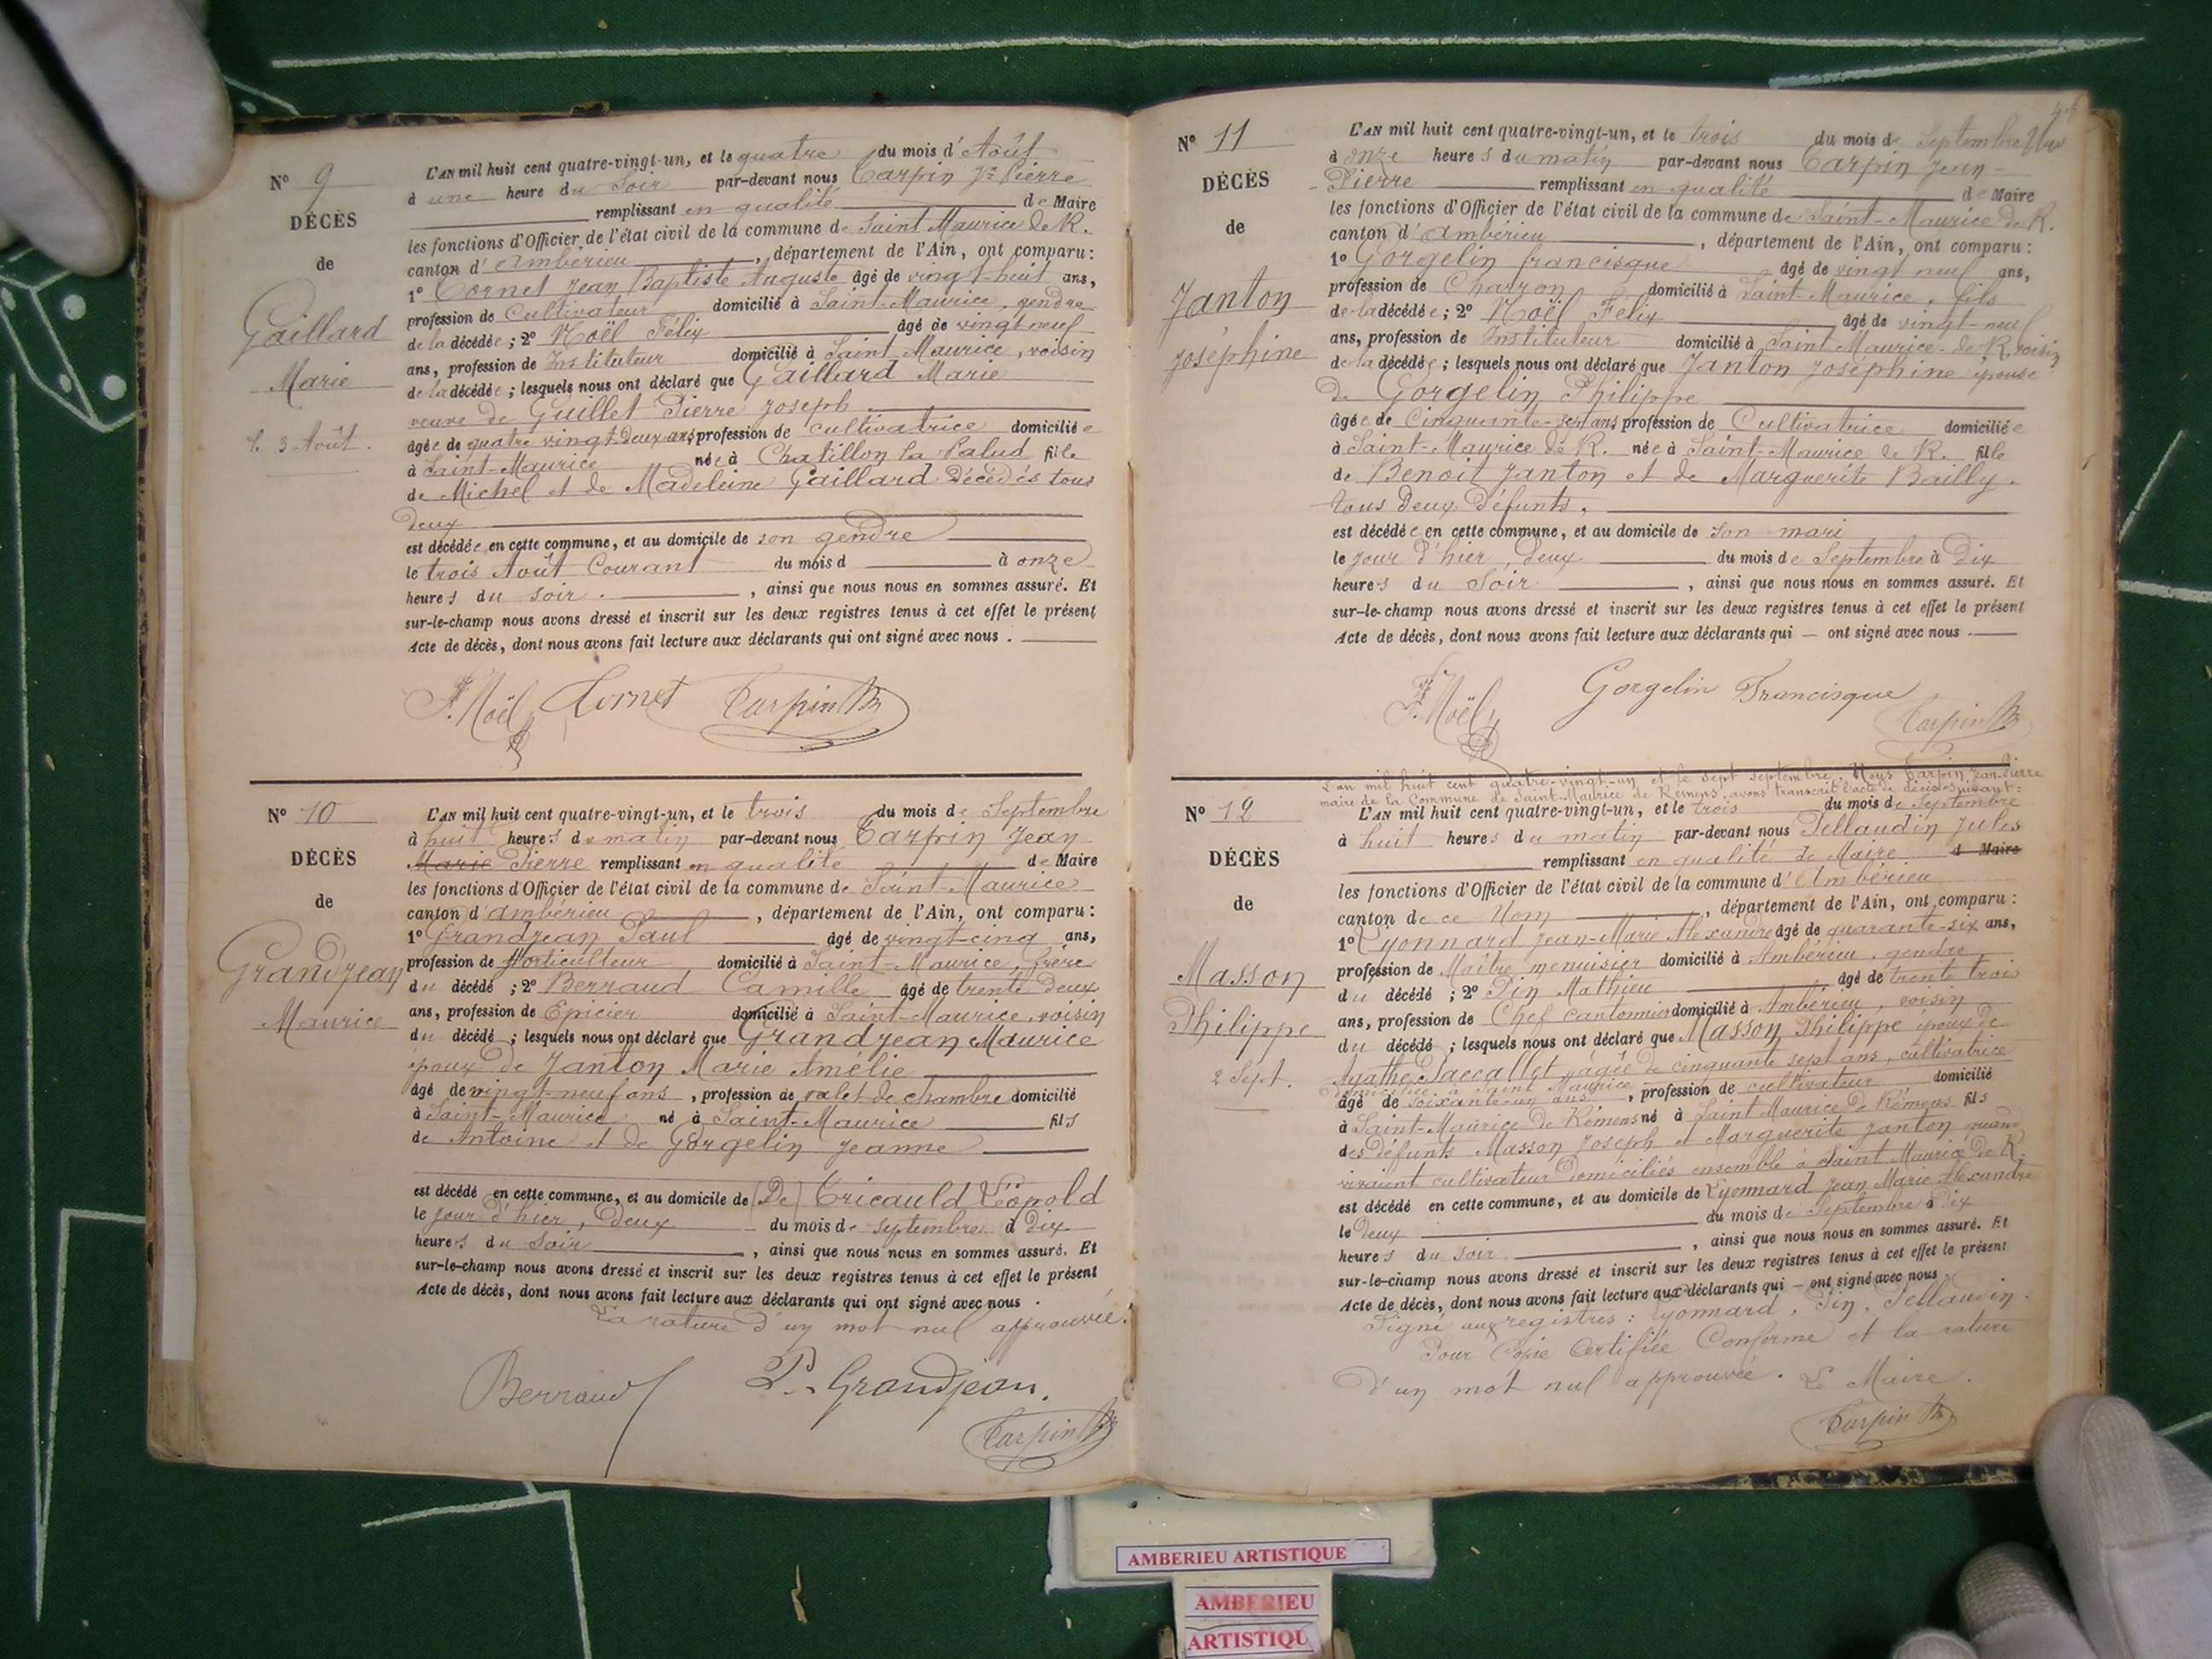 N° 9
DÉCÈS
de
Gaillard
Marie
L. 3 Août.
L'AN mil huit cent quatre-vingt-un, et le quatre du mois d'Août
à une heure du Soir par-devant nous Carpin Jn Pierre
remplissant en qualité de Maire
les fonctions d'Officier de l'état civil de la commune de Saint Maurice de R.
canton d'Ambérieu, département de l'Ain, ont comparu:
1° Cornet Jean Baptiste Auguste âgé de vingt-huit ans,
profession de Cultivateur domicilié à Saint-Maurice, gendre
de la décédée; 2° Noël Félix âgé de vingt neuf
ans, profession de Instituteur domicilié à Saint Maurice, voisin
de la décédée; lesquels nous ont déclaré que Gaillard Marie
veuve de Guillet Pierre Joseph
âgée de quatre vingt deux ans profession de cultivatrice domiciliée
à Saint-Maurice née à Chatillon la Palud fille
de Michel et de Madeleine Gaillard Décédés tous
deux
est décédée en cette commune, et au domicile de son gendre
le trois Août Courant du mois d à onze
heures du soir. , ainsi que nous nous en sommes assuré. Et
sur-le-champ nous avons dressé et inscrit sur les deux registres tenus à cet effet le présent
Acte de décès, dont nous avons fait lecture aux déclarants qui ont signé avec nous.
F. Noël Cornet Carpin
N° 10
DÉCÈS
de
Grandjean
Maurice
L'AN mil huit cent quatre-vingt-un, et le trois du mois de Septembre
à huit heures du matin par-devant nous Carpin Jean
Marie Pierre remplissant en qualité de Maire
les fonctions d'Officier de l'état civil de la commune de Saint-Maurice
canton d'Ambérieu, département de l'Ain, ont comparu:
1° Grandjean Paul âgé de vingt-cinq ans,
profession de Horticulteur domicilié à Saint-Maurice, frère
du décédé; 2° Berraud Camille âgé de trente deux
ans, profession de Epicier domicilié à Saint-Maurice, voisin
du décédé; lesquels nous ont déclaré que Grandjean Maurice
époux de Janton Marie Amélie
âgé de vingt-neuf ans, profession de valet de chambre domicilié
à Saint-Maurice né à Saint-Maurice fils
de Antoine et de Gorgelin Jeanne
est décédé en cette commune, et au domicile de (De) Tricauld Léopold
le jour d'hier, deux du mois de septembre à Dix
heures du Soir, ainsi que nous nous en sommes assuré. Et
sur-le-champ nous avons dressé et inscrit sur les deux registres tenus à cet effet le présent
Acte de décès, dont nous avons fait lecture aux déclarants qui ont signé avec nous.
La rature d'un mot nul approuvée.
Berraud P. Grandjean.
Carpin
N° 11
DÉCÈS
de
Janton
Joséphine
L'AN mil huit cent quatre-vingt-un, et le trois du mois de Septembre
à onze heures du matin par-devant nous Carpin Jean-
Pierre remplissant en qualité de Maire
les fonctions d'Officier de l'état civil de la commune de Saint-Maurice de R.
canton d'Ambérieu, département de l'Ain, ont comparu:
1° Gorgelin francisque âgé de vingt neuf ans,
profession de Charron domicilié à Saint-Maurice, fils
de la décédée; 2° Noël Félix âgé de vingt-neuf
ans, profession de Instituteur domicilié à Saint Maurice-de R. voisin
de la décédée; lesquels nous ont déclaré que Janton Joséphine épouse
de Gorgelin Philippe
âgée de Cinquante-sept ans profession de Cultivatrice domiciliée
à Saint-Maurice de R. née à Saint-Maurice de R. fille
de Benoit Janton et de Marguerite Bailly.
tous Deux Défunts.
est décédée en cette commune, et au domicile de son mari
le jour d'hier, deux du mois de Septembre à Dix
heures du Soir, ainsi que nous nous en sommes assuré. Et
sur-le-champ nous avons dressé et inscrit sur les deux registres tenus à cet effet le présent
Acte de décès, dont nous avons fait lecture aux déclarants qui — ont signé avec nous.
F. Noël Gorgelin Francisque
Carpin
L'an mil huit cent quatre-vingt-un et le sept septembre, Nous Carpin Jean-Pierre
maire de la Commune de Saint-Maurice de Rémens, avons transcrit l'acte de décès suivant:
N° 12
DÉCÈS
de
Masson
Philippe
2 Sept.
L'AN mil huit cent quatre-vingt-un, et le trois du mois de Septembre
à huit heures du matin par-devant nous Pellaudin Jules
remplissant en qualité de Maire d Maire
les fonctions d'Officier de l'état civil de la commune d'Ambérieu
canton de ce Nom, département de l'Ain, ont comparu:
1° Lyonnard Jean-Marie Alexandre âgé de quarante-six ans,
profession de Maître menuisier domicilié à Ambérieu, gendre
du décédé; 2° Pin Mathieu âgé de trente trois
ans, profession de Chef cantonnier domicilié à Ambérieu, voisin
du décédé; lesquels nous ont déclaré que Masson Philippe époux de
Agathe âgée de cinquante sept ans, cultivatrice
domiciliée à Saint Maurice
âgé de soixante-un ans, profession de cultivateur domicilié
à Saint-Maurice de Rémens né à Saint Maurice de Rémens fils
des défunts Masson Joseph et Marguerite Janton quand
vivaient cultivateur domiciliés ensemble à Saint Maurice de R.
est décédé en cette commune, et au domicile de Lyonnard Jean Marie Alexandre
le Deux du mois de Septembre à Dix
heures du soir, ainsi que nous nous en sommes assuré. Et
sur-le-champ nous avons dressé et inscrit sur les deux registres tenus à cet effet le présent
Acte de décès, dont nous avons fait lecture aux déclarants qui — ont signé avec nous.
Signé aux registres: Lyonnard, Pin, Pellaudin.
Pour Copie Certifiée Conforme et la rature
d'un mot nul approuvée. Le Maire.
Carpin
AMBERIEU ARTISTIQUE
AMBERIEU
ARTISTIQU